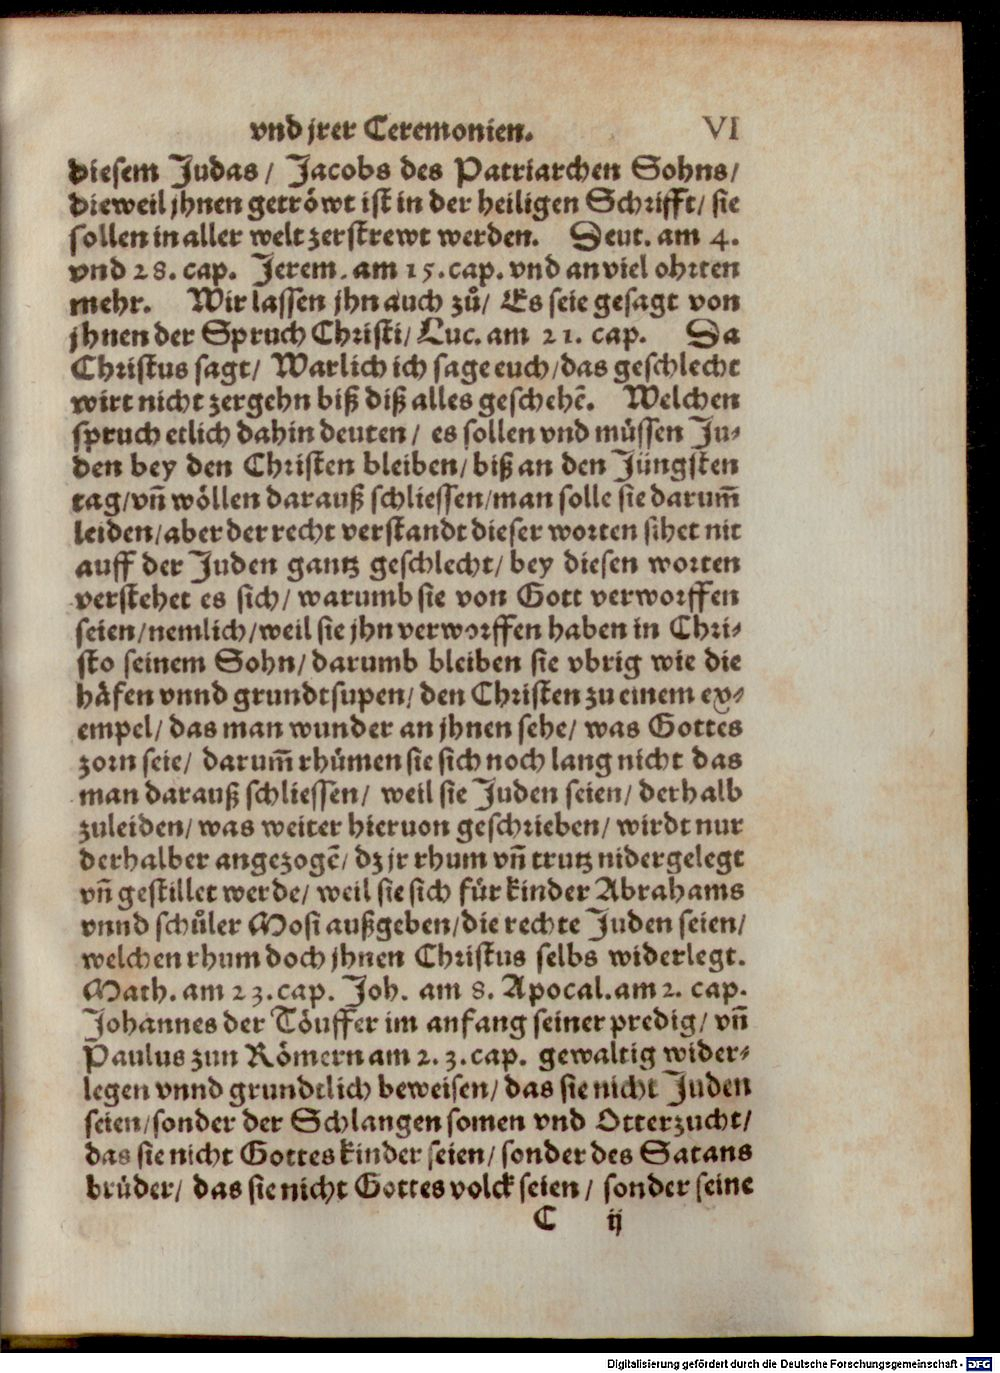 vnd jrer Ceremonien. VI
diesem Judas / Jacobs des Patriarchen Sohns /
dieweil jhnen getröwt ist in der heiligen Schrifft / sie
sollen in aller welt zerstrewt werden. Deut. am 4.
vnd 28. cap. Jerem. am 15. cap. vnd an viel ohrten
mehr. Wir lassen jhn auch zů / Es seie gesagt von
jhnen der Spruch Christi / Luc. am 21. cap. Da
Christus sagt / Warlich ich sage euch / das geschlecht
wirt nicht zergehn biß diß alles geschehē. Welchen
spruch etlich dahin deuten / es sollen vnd müssen Ju-
den bey den Christen bleiben / biß an den Jüngsten
tag / vñ wöllen darauß schliessen / man solle sie darum̃
leiden / aber der recht verstandt dieser worten sihet nit
auff der Juden gantz geschlecht / bey diesen worten
verstehet es sich / warumb sie von Gott verworffen
seien / nemlich / weil sie jhn verworffen haben in Chri-
sto seinem Sohn / darumb bleiben sie vbrig wie die
häfen vnnd grundtsupen / den Christen zu einem ex-
empel / das man wunder an jhnen sehe / was Gottes
zorn seie / darum̃ rhümen sie sich noch lang nicht das
man darauß schliessen / weil sie Juden seien / derhalb
zuleiden / was weiter hieruon geschrieben / wirdt nur
derhalber angezogē / dz jr rhum vñ trutz nidergelegt
vñ gestillet werde / weil sie sich für kinder Abrahams
vnnd schůler Mosi außgeben / die rechte Juden seien /
welchen rhum doch jhnen Christus selbs widerlegt.
Math. am 23. cap. Joh. am 8. Apocal. am 2. cap.
Johannes der Töuffer im anfang seiner predig / vñ
Paulus zun Römern am 2. 3. cap. gewaltig wider-
legen vnnd grundtlich beweisen / das sie nicht Juden
seien / sonder der Schlangen somen vnd Otterzucht /
das sie nicht Gottes kinder seien / sonder des Satans
brüder / das sie nicht Gottes volck seien / sonder seine
C ij
Digitalisierung gefördert durch die Deutsche Forschungsgemeinschaft - DFG